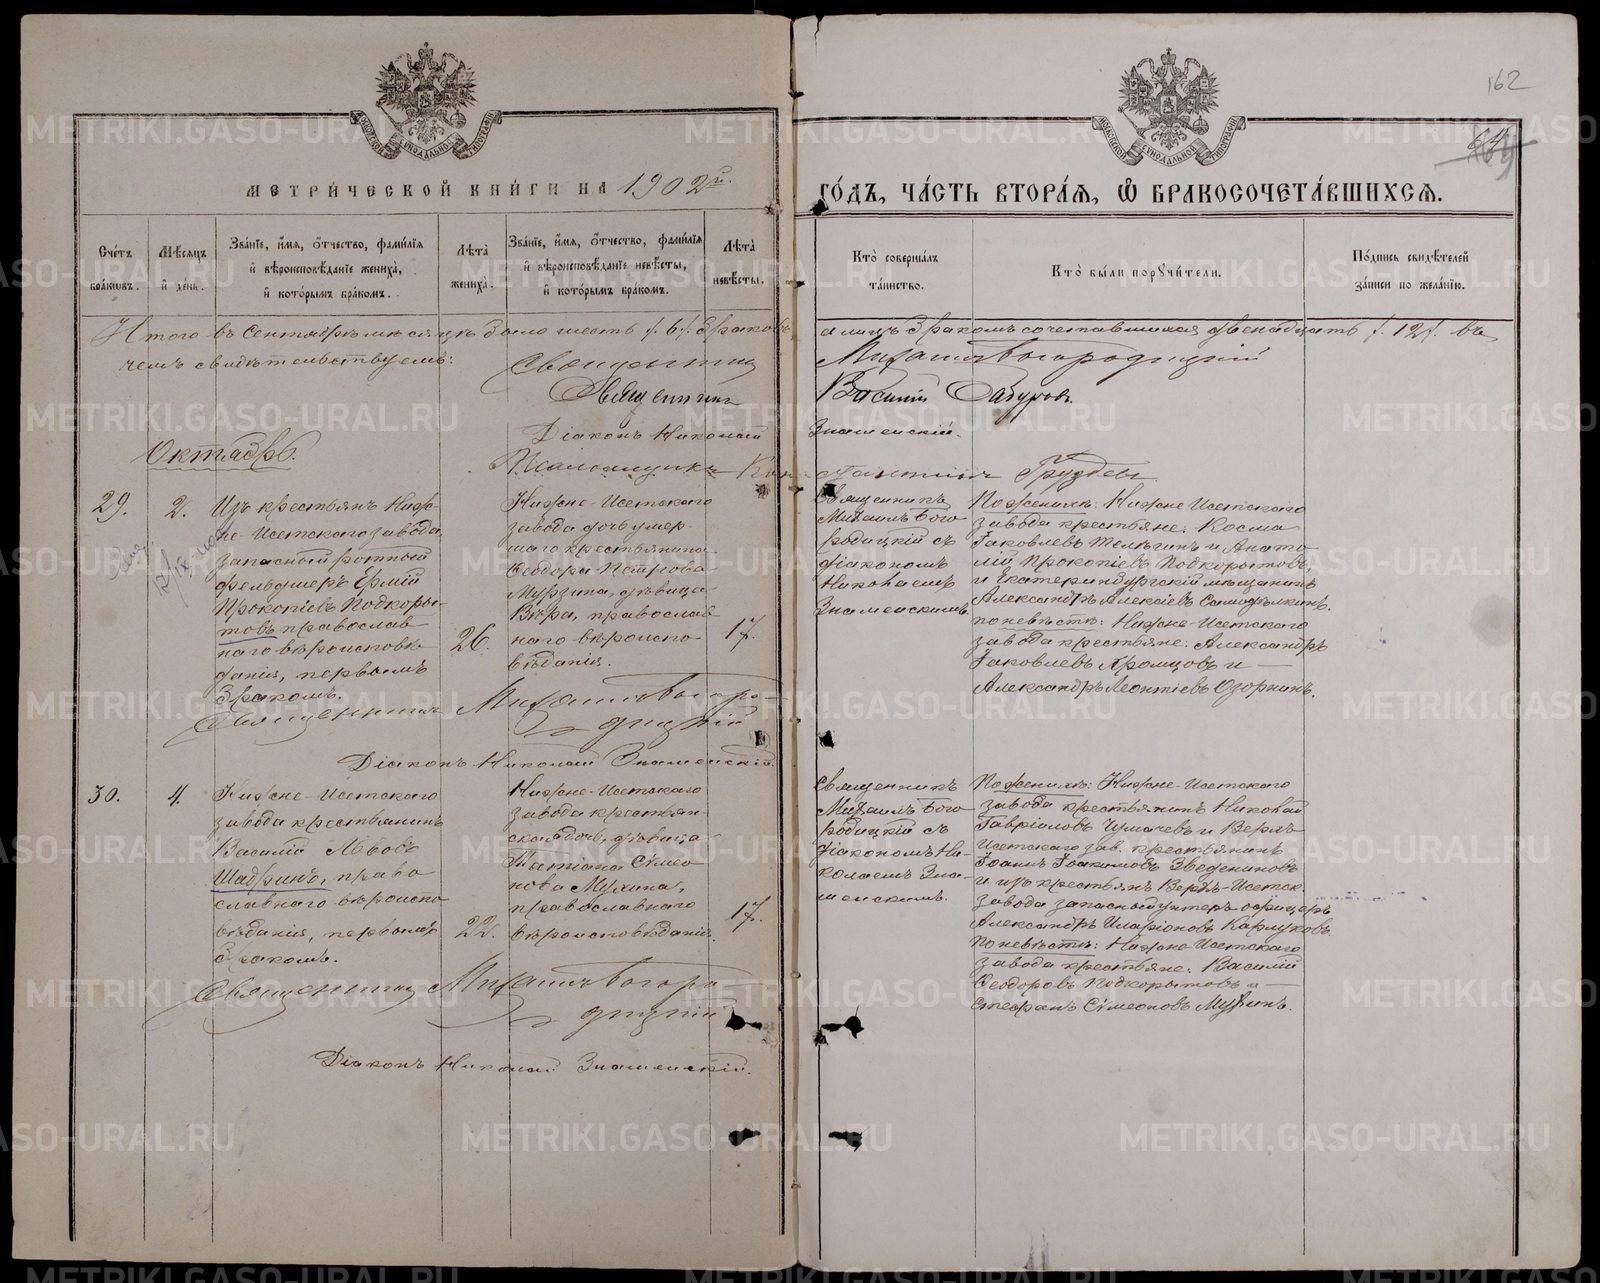 162
МЕТРИЧЕСКОЙ КНИГИ НА 1902й.
ГОДЪ, ЧАСТЬ ВТОРАЯ, Ѡ БРАКОСОЧЕТАВШИХСЯ.
Счетъ браковъ.
Мѣсяцъ и день.
Званіе, имя, отчество, фамилія и вѣроисповѣданіе жениха, и которымъ бракомъ.
Лѣта жениха.
Званіе, имя, отчество, фамилія и вѣроисповѣданіе невѣсты, и которымъ бракомъ.
Лѣта невѣсты.
Кто совершалъ таинство.
Кто были поручители.
Подпись свидѣтелей записи по желанію.
Итого въ Сентябрѣ мѣсяцѣ было шесть /.6/. браковъ
а лицъ бракомъ сочетавшихся двенадцать /.12/. въ
чемъ свидѣтельствуемъ:
Священникъ Михаилъ Богородицкій
Священникъ Василій
Діаконъ Николай Знаменскій.
Псаломщикъ Груздевъ
Октябрь.
29.
2.
Изъ крестьянъ Ниж-
не-Исетскаго завода,
запасный ротный
фельдшеръ Ермій
Прокопіевъ Подкоры-
товъ православ
наго вѣроисповѣ
данія, первымъ
бракомъ.
26.
Нижне-Исетскаго
завода дочь умер-
шаго крестьянина
Ѳеодора Петрова
Мурзина, дѣвица
Вѣра, православ
наго вѣроиспо-
вѣданія.
17.
Священникъ
Михаилъ Бого
родицкій съ
діакономъ
Николаемъ
Знаменскимъ.
По женихѣ: Нижне Исетскаго
завода крестьяне: Косма
Іаковлевъ Телѣгинъ и Анато
лій Прокопіевъ Подкорытовъ,
и Екатеринбургскій мѣщанинъ
Александръ Алексіевъ Самодѣлкинъ.
по невѣстѣ: Нижне-Исетскаго
завода крестьяне: Александръ
Іаковлевъ Хромцовъ и
Александръ Леонтіевъ Озорнинъ.
Священникъ Михаилъ Богоро-
дицкій
Діаконъ Николай Знаменскій.
30.
4.
Нижне-Исетскаго
завода крестьянинъ
Василій Львовъ
Шадринъ, право
славнаго вѣроиспо
вѣданія, первымъ
бракомъ.
22.
Нижне-Исетскаго
завода крестьян-
ская дочь, дѣвица
Татіана Сімео
нова Мухина,
православнаго
вѣроисповѣданія.
17.
Священникъ
Михаилъ Бого
родицкій съ
діакономъ Ни-
колаемъ Зна-
менскимъ.
По женихѣ: Нижне-Исетскаго
завода крестьянинъ Николай
Гавріиловъ Чумачевъ и Верхъ
Исетскаго зав. крестьянинъ
Іоаннъ Іоакимовъ Зведениновъ
и изъ крестьянъ Верхъ-Исетск.
завода запасный унтеръ офицеръ
Александръ Иларіоновъ Карлуковъ.
по невѣстѣ: Нижне-Исетскаго
завода крестьяне: Василій
Ѳеодоровъ Подкорытовъ и
Стефанъ Сімеоновъ Мухинъ.
Священникъ Михаилъ Богоро
дицкій
Діаконъ Николай Знаменскій.
METRIKI.GASO-URAL.RU